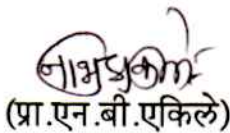 (प्रा.एन.बी.एकिले)